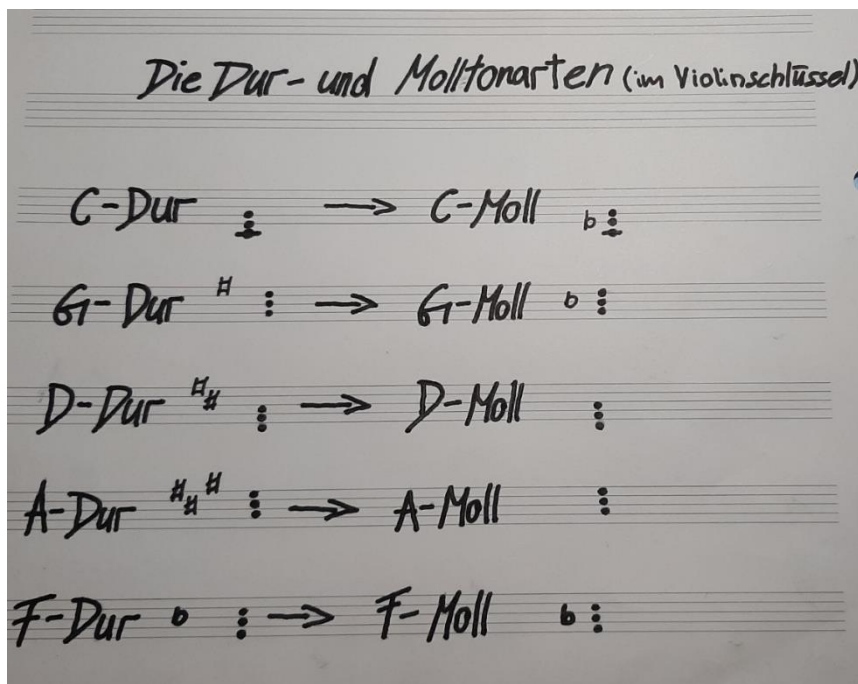 Die Dur- und Molltonarten (im Violinschlüssel)
C-Dur → C-Moll b
G-Dur # → G-Moll b
D-Dur ## → D-Moll
A-Dur ### → A-Moll
F-Dur b → F-Moll b